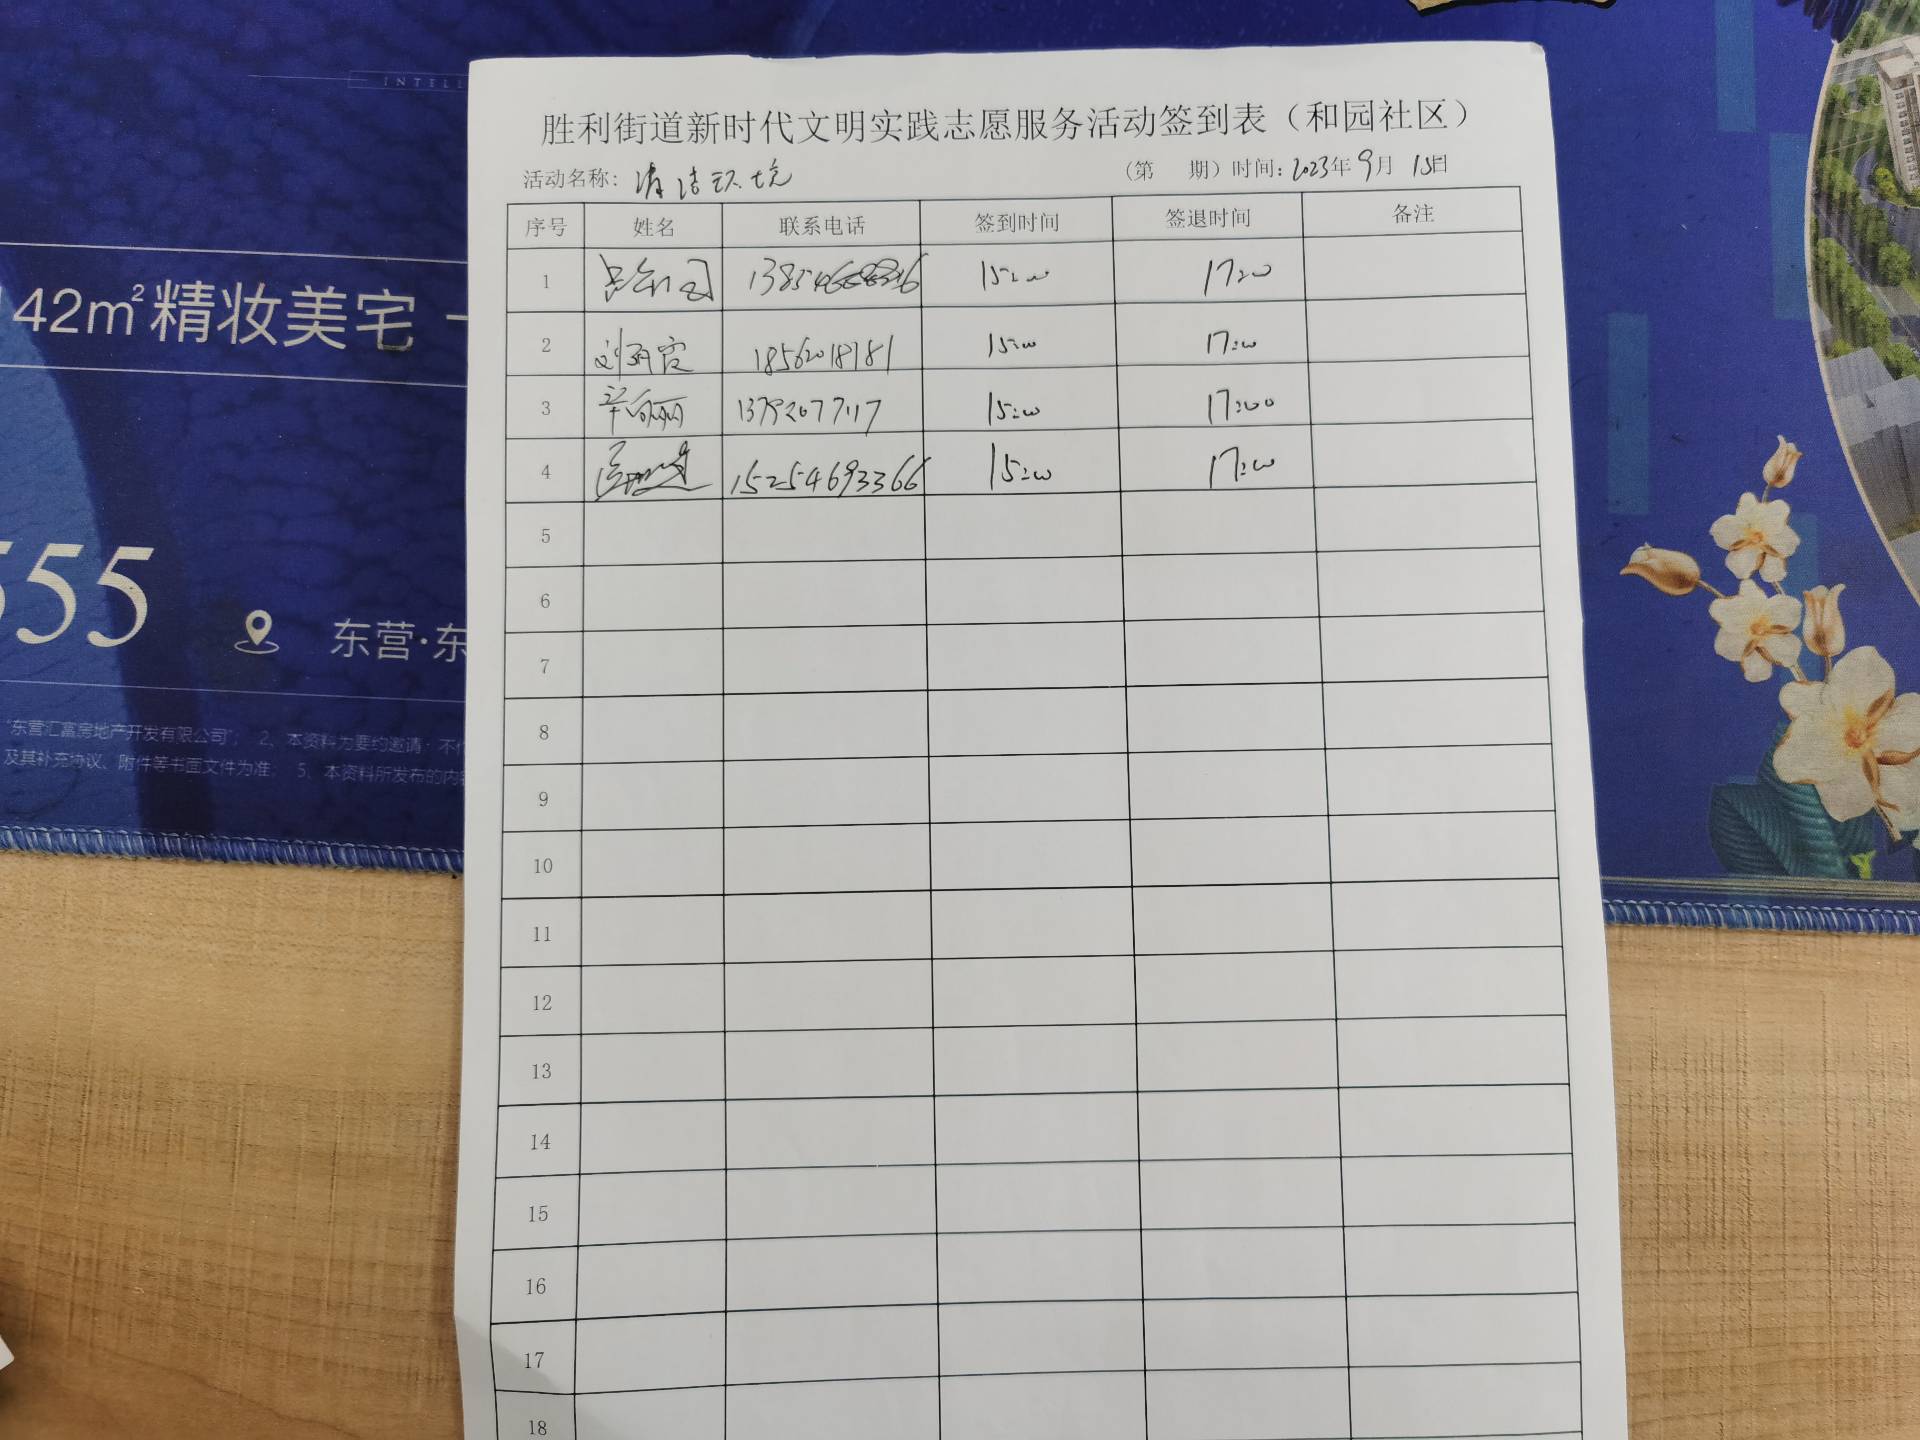 INTELL
142m²精妆美宅
555
东营·东
"东营汇富房地产开发有限公司"； 2、本资料为要约邀请，不作
及其补充协议、附件等书面文件为准。 5、本资料所发布的内容
胜利街道新时代文明实践志愿服务活动签到表（和园社区）
活动名称：清洁环境 （第 期）时间：2023年9月15日
序号 姓名 联系电话 签到时间 签退时间 备注
1 15:00 17:00
2 18562018781 15:00 17:00
3 辛向丽 13792077117 15:00 17:00
4 15254693366 15:00 17:00
5
6
7
8
9
10
11
12
13
14
15
16
17
18